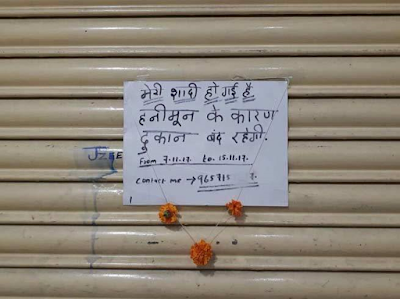 मेरी शादी हो गई है
हनीमून के कारण
दुकान बंद रहेगी.
From 7.11.17. to. 15.11.17.
contact me →